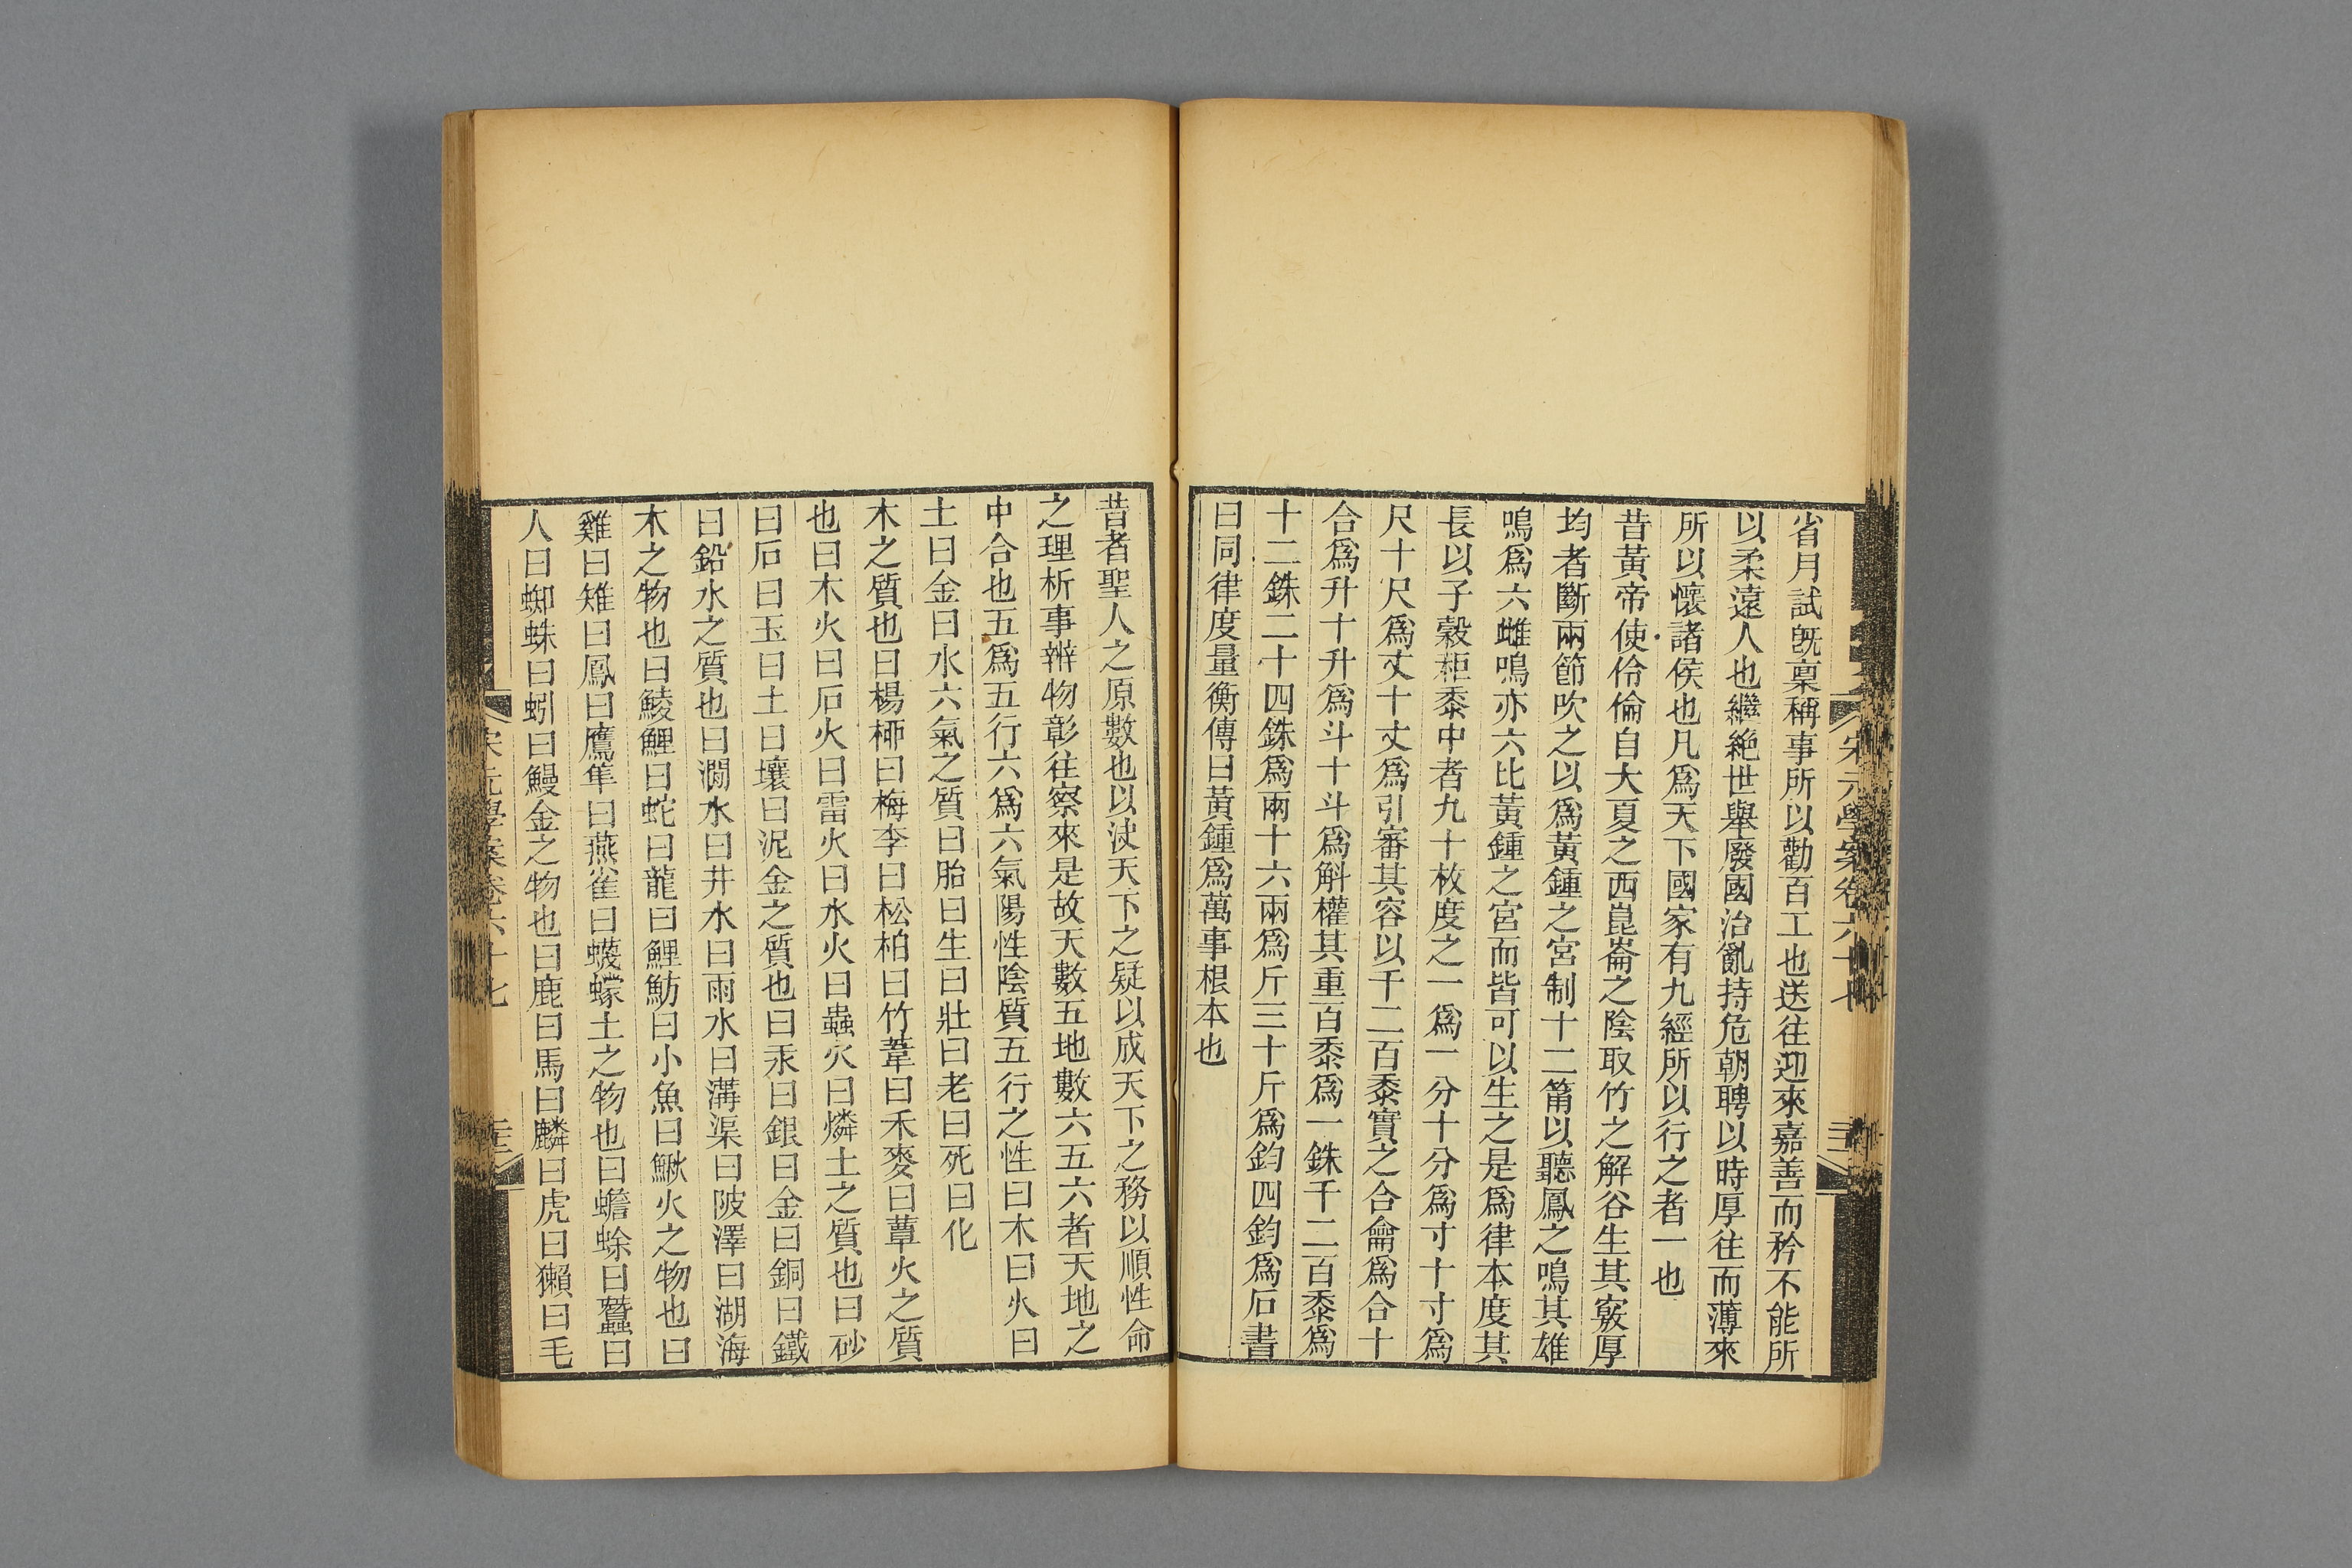 省月試旣稟稱事所以勸百工也送往迎來嘉善而矜不能所
以柔遠人也繼絶世舉廢國治亂持危朝聘以時厚往而薄來
所以懷諸侯也凡爲天下國家有九經所以行之者一也
昔黃帝使伶倫自大夏之西崑崙之陰取竹之解谷生其竅厚
均者斷兩節吹之以爲黃鍾之宮制十二筩以聽鳳之鳴其雄
鳴爲六雌鳴亦六比黃鍾之宮而皆可以生之是爲律本度其
長以子穀秬黍中者九十枚度之一爲一分十分爲寸十寸爲
尺十尺爲丈十丈爲引審其容以千二百黍實之合龠爲合十
合爲升十升爲斗十斗爲斛權其重百黍爲一銖千二百黍爲
十二銖二十四銖爲兩十六兩爲斤三十斤爲鈞四鈞爲石書
曰同律度量衡傳曰黃鍾爲萬事根本也
宋元學案卷六十七
昔者聖人之原數也以決天下之疑以成天下之務以順性命
之理析事辨物彰往察來是故天數五地數六五六者天地之
中合也五爲五行六爲六氣陽性陰質五行之性曰木曰火曰
土曰金曰水六氣之質曰胎曰生曰壯曰老曰死曰化
木之質也曰楊柳曰梅李曰松柏曰竹葦曰禾麥曰蕈火之質
也曰木火曰石火曰雷火曰水火曰蟲火曰燐土之質也曰砂
曰石曰玉曰土曰壤曰泥金之質也曰汞曰銀曰金曰銅曰鐵
曰鉛水之質也曰澗水曰井水曰雨水曰溝渠曰陂澤曰湖海
木之物也曰鯪鯉曰蛇曰龍曰鯉魴曰小魚曰鰍火之物也曰
雞曰雉曰鳳曰鷹隼曰燕雀曰蠛蠓土之物也曰蟾蜍曰蠶曰
人曰蜘蛛曰蚓曰鰻金之物也曰鹿曰馬曰麟曰虎曰獺曰毛
宋元學案卷六十七